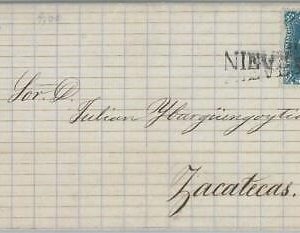 NIEV
Sor. D.
Julian Ybargüengoytia
Zacatecas.